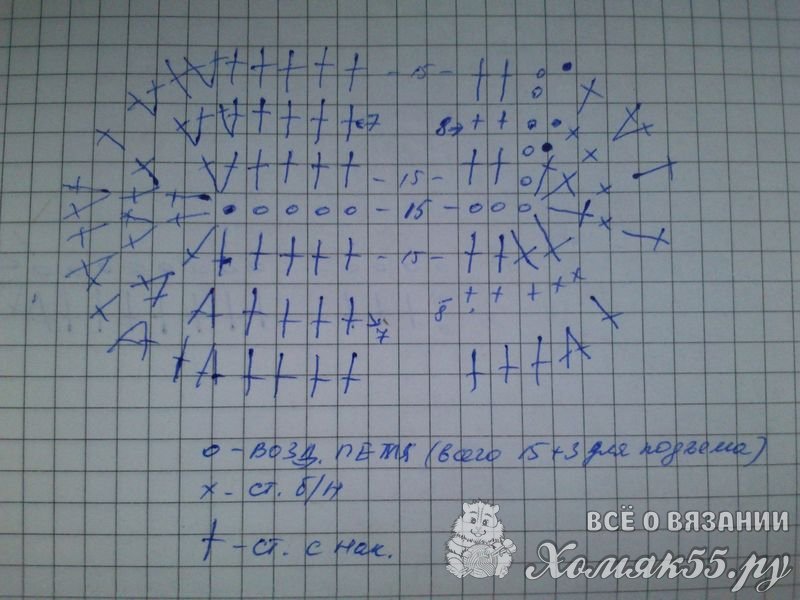 - 15 -
7
8
- 15 -
- 15 -
- 15 -
8
7
о - возд. петля (всего 15+3 для подъема)
х - ст. б/н
† - ст. с нак.
ВСЁ О ВЯЗАНИИ
Хомяк55.ру